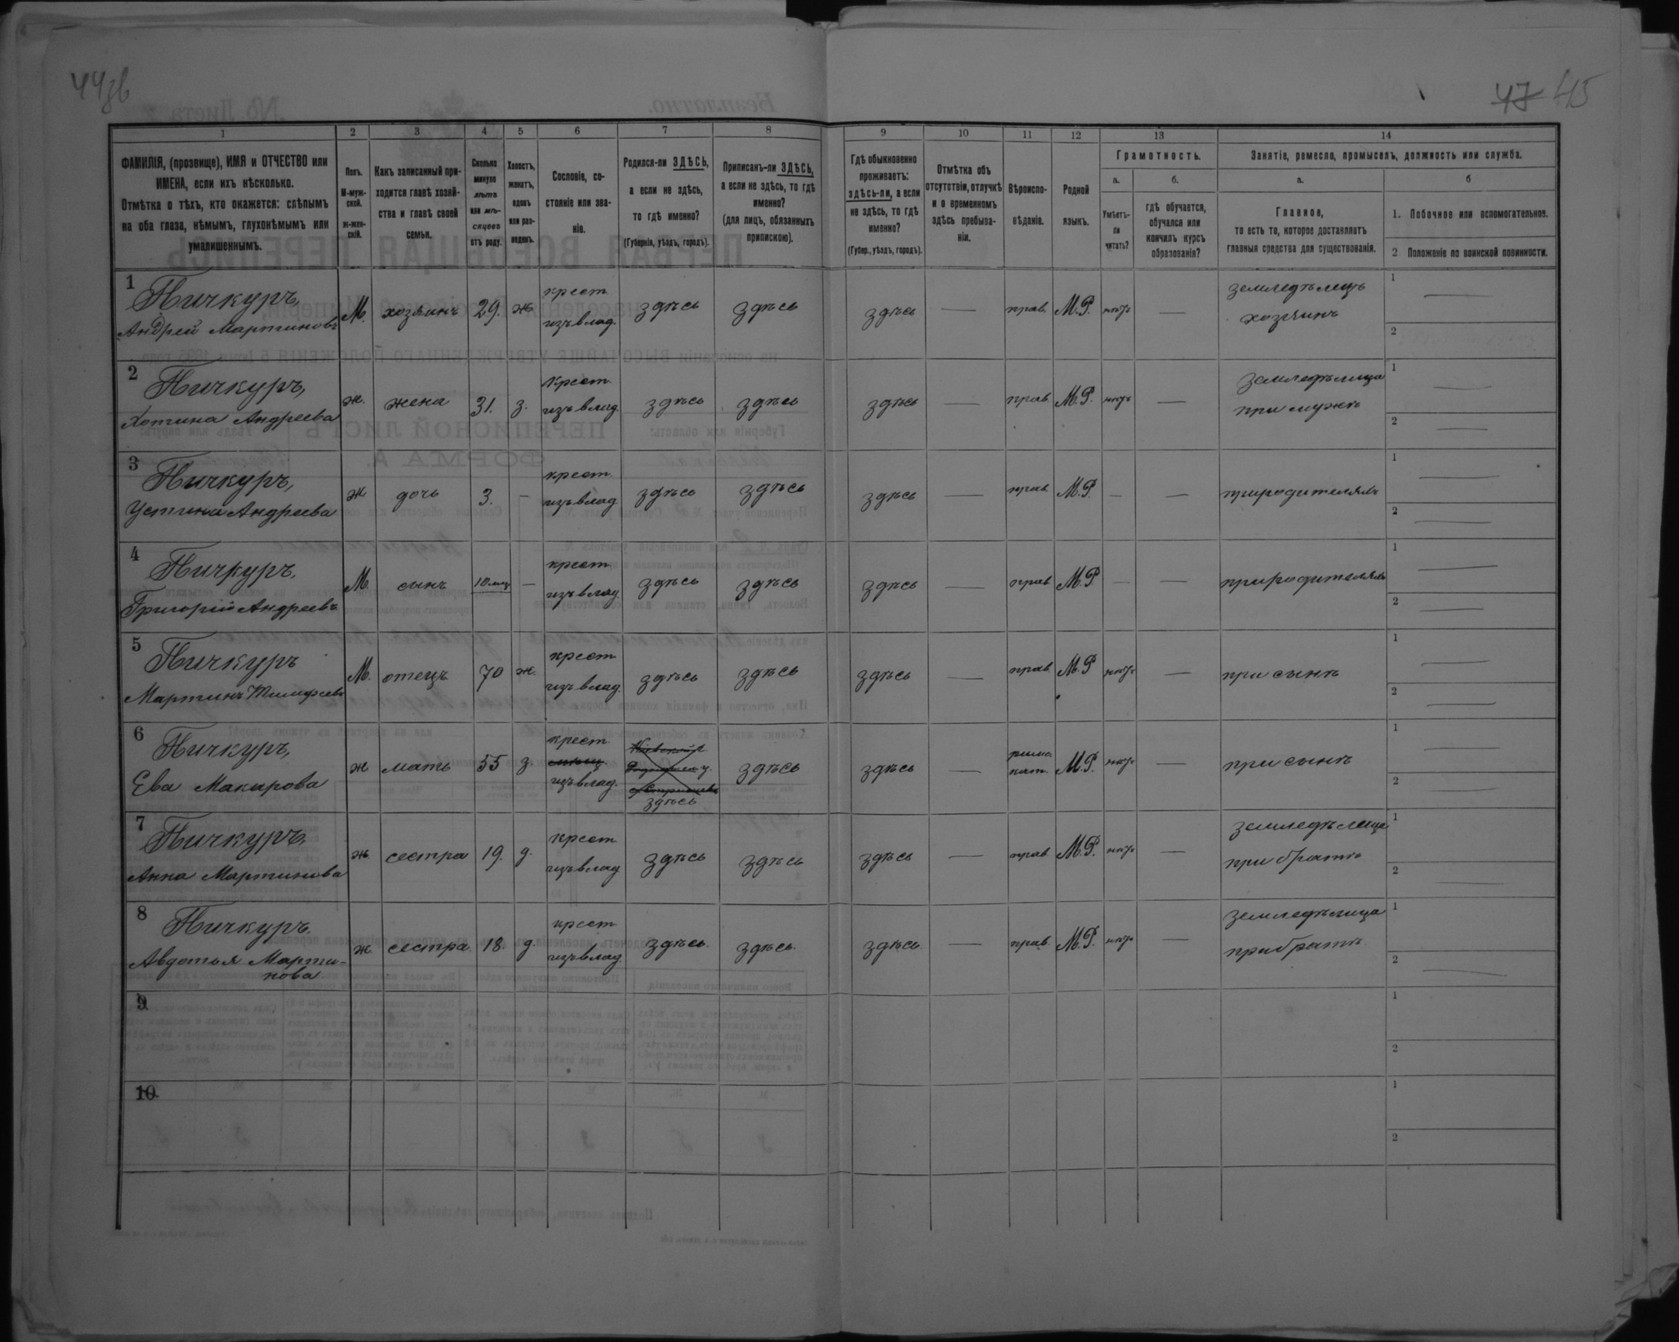 44зв
47 45
1
2
3
4
5
6
7
8
9
10
11
12
13
14
ФАМИЛІЯ, (прозвище), ИМЯ и ОТЧЕСТВО или
ИМЕНА, если ихъ нѣсколько.
Отмѣтка о тѣхъ, кто окажется: слѣпымъ
на оба глаза, нѣмымъ, глухонѣмымъ или
умалишеннымъ.
Полъ.
М-муж-
ской.
ж-жен-
скій.
Какъ записанный при-
ходится главѣ хозяй-
ства и главѣ своей
семьи.
Сколько
минуло
лѣтъ
или мѣ-
сяцевъ
отъ роду.
Холостъ,
женатъ,
вдовъ
или раз-
веденъ.
Сословіе, со-
стояніе или зва-
ніе.
Родился-ли ЗДѢСЬ,
а если не здѣсь,
то гдѣ именно?
(Губернія, уѣздъ, городъ).
Приписанъ-ли ЗДѢСЬ,
а если не здѣсь, то гдѣ
именно?
(для лицъ, обязанныхъ
припискою).
Гдѣ обыкновенно
проживаетъ:
здѣсь-ли, а если
не здѣсь, то гдѣ
именно?
(Губер., уѣздъ, городъ).
Отмѣтка объ
отсутствіи, отлучкѣ
и о временномъ
здѣсь пребыва-
ніи.
Вѣроиспо-
вѣданіе.
Родной
языкъ.
Грамотность.
а.
Умѣетъ-
ли
читать?
б.
гдѣ обучается,
обучался или
кончилъ курсъ
образованія?
Занятіе, ремесло, промыселъ, должность или служба.
а.
Главное,
то есть то, которое доставляетъ
главныя средства для существованія.
б
1. Побочное или вспомогательное.
2 Положеніе по воинской повинности.
1
Пичкуръ,
Андрей Мартиновъ
М. хозяинъ 29. ж.
крест
изъ влад.
здѣсь здѣсь здѣсь — прав. М.Р. нѣтъ —
земледѣлецъ
хозяинъ
1 —
2
2
Пичкуръ,
Хотина Андреева
ж. жена 31. з.
крест
изъ влад
здѣсь здѣсь здѣсь — прав М.Р. нѣтъ —
земледѣлица
при мужѣ
1 —
2 —
3
Пичкуръ,
Устина Андреева
ж дочь 3. —
крест
изъ влад
здѣсь здѣсь здѣсь — прав М.Р. — —
при родителяхъ
1 —
2 —
4
Пичкуръ,
Григорій Андреевъ
М. сынъ 10 мц —
крест
изъ влад
здѣсь здѣсь здѣсь — прав М.Р — —
при родителяхъ
1 —
2 —
5
Пичкуръ
Мартинъ Тимофеевъ
М. отецъ 70 ж.
крест
изъ влад.
здѣсь здѣсь здѣсь — прав М.Р нѣтъ —
при сынѣ
1 —
2 —
6
Пичкуръ,
Ева Макарова
ж мать 55 з.
крест
изъ влад.
здѣсь
здѣсь здѣсь —
римо
кат.
М.Р. нѣтъ —
при сынѣ
1 —
2 —
7
Пичкуръ.
Анна Мартинова
ж. сестра 19. д.
крест
изъ влад
здѣсь здѣсь здѣсь — прав М.Р. нѣтъ —
земледѣлица
при братѣ
1 —
2 —
8
Пичкуръ.
Авдотья Марти-
нова
ж сестра 18. д
крест
изъ влад
здѣсь. здѣсь. здѣсь — прав. М.Р. нѣтъ —
земледѣлица
при братѣ
1 —
2 —
9
1
2
10
1
2